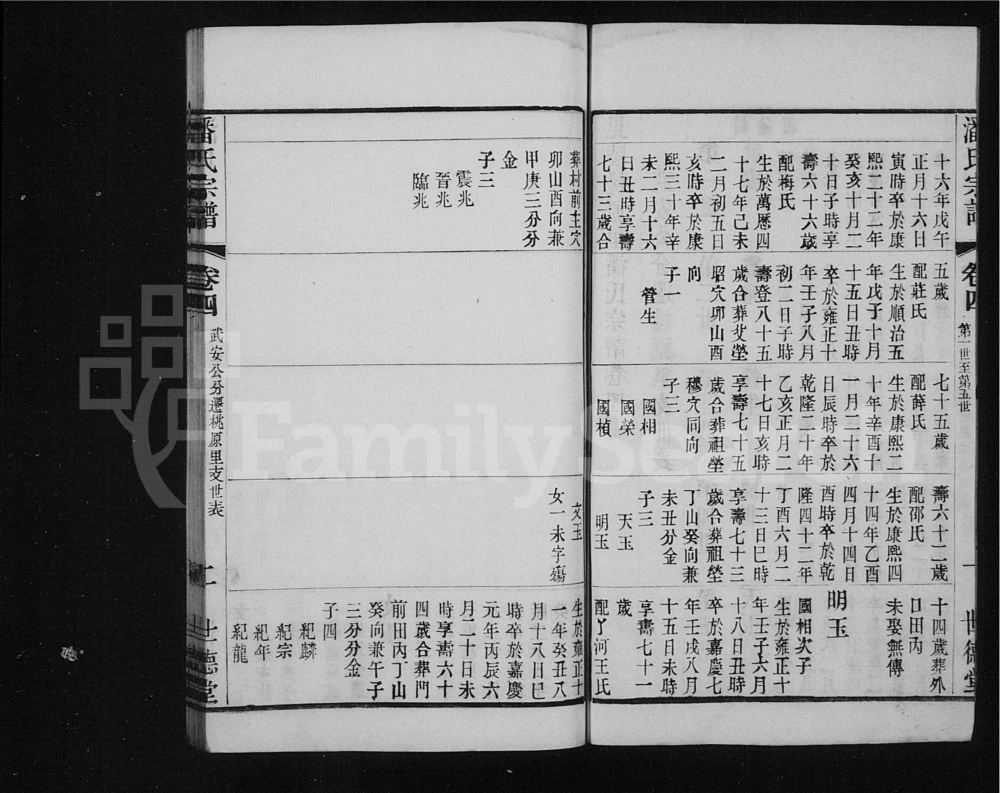 潘氏宗譜
卷四
第一世至第五世
一
世德堂
十六年戊午
正月十六日
寅時卒於康
熙二十二年
癸亥十月二
十日子時享
壽六十六歲
配梅氏
生於萬厯四
十七年己未
二月初五日
亥時卒於康
熙三十年辛
未二月十六
日丑時享壽
七十三歲合
五歲
配莊氏
生於順治五
年戊子十月
十五日丑時
卒於雍正十
年壬子八月
初二日子時
壽登八十五
歲合葬艾塋
昭穴卯山酉
向
子一
管生
七十五歲
配薛氏
生於康熙二
十年辛酉十
一月二十六
日辰時卒於
乾隆二十年
乙亥正月二
十七日亥時
享壽七十五
歲合葬祖塋
穆穴同向
子三
國相
國榮
國楨
壽六十二歲
配邵氏
生於康熙四
十四年乙酉
四月十四日
酉時卒於乾
隆四十二年
丁酉六月二
十三日巳時
享壽七十三
歲合葬祖塋
丁山癸向兼
未丑分金
子三
天玉
明玉
十四歲葬外
口田內
未娶無傳
明玉
國相次子
生於雍正十
年壬子六月
十八日丑時
卒於嘉慶七
年壬戌八月
十五日未時
享壽七十一
歲
配丫河王氏
葬村前主穴
卯山酉向兼
甲庚三分分
金
子三
震兆
晉兆
臨兆
文玉
女一未字殤
生於雍正十
一年癸丑八
月十八日巳
時卒於嘉慶
元年丙辰六
月二十日未
時享壽六十
四歲合葬門
前田內丁山
癸向兼午子
三分分金
子四
紀麟
紀宗
紀年
紀龍
潘氏宗譜
卷四
武安公分遷桃原里支世表
二
世德堂
FamilySe